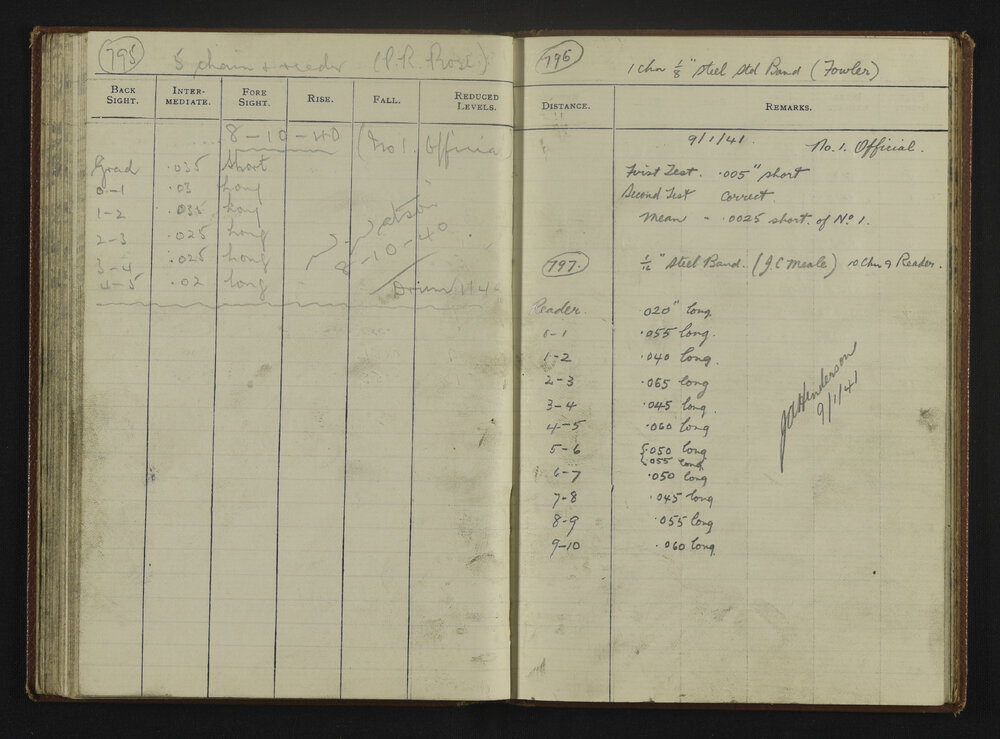 795 5 chain + reeder (P.R. Rose)
BACK SIGHT. INTER-MEDIATE. FORE SIGHT. RISE. FALL. REDUCED LEVELS.
8-10-40 (No 1. Official
Grad .035 Short
0-1 .03 Long
1-2 .035 Long
2-3 .025 Long
3-4 .025 Long
4-5 .02 long
8-10-40
796 1 Chn 1/8" Steel Std Band (Fowler)
DISTANCE. REMARKS.
9/1/41. No. 1. Official.
First Test. .005" short
Second Test Correct.
Mean - .0025 short. of No 1.
797. 1/16" Steel Band. (J.C Meale) 10 Chn & Reader.
Reader. .020" long.
0-1 .055 long.
1-2 .040 long.
2-3 .065 long
3-4 .045 long.
4-5 .060 long
5-6 {.050 long
{.055 long.
6-7 .050 long
7-8 .045 long
8-9 .055 long
9-10 .060 long
Henderson
9/1/41